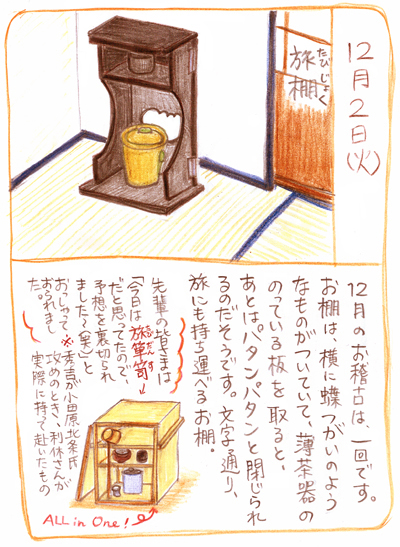 12月2日(火)
旅棚
たびじょく
12月のお稽古は、一回です。
お棚は、横に蝶つがいのよう
なものがついていて、薄茶器の
のっている板を取ると、
あとはパタンパタンと閉じられ
るのだそうです。文字通り、
旅にも持ち運べるお棚。
先輩の皆さまは
「今日は旅箪笥
だんす
だと思ってたので、
予想を裏切られ
ました〜(笑)」と
おっしゃって
おられまし
た。
※秀吉が小田原北条氏
攻めのとき、利休さんが
実際に持って赴いたもの
ALL in One!